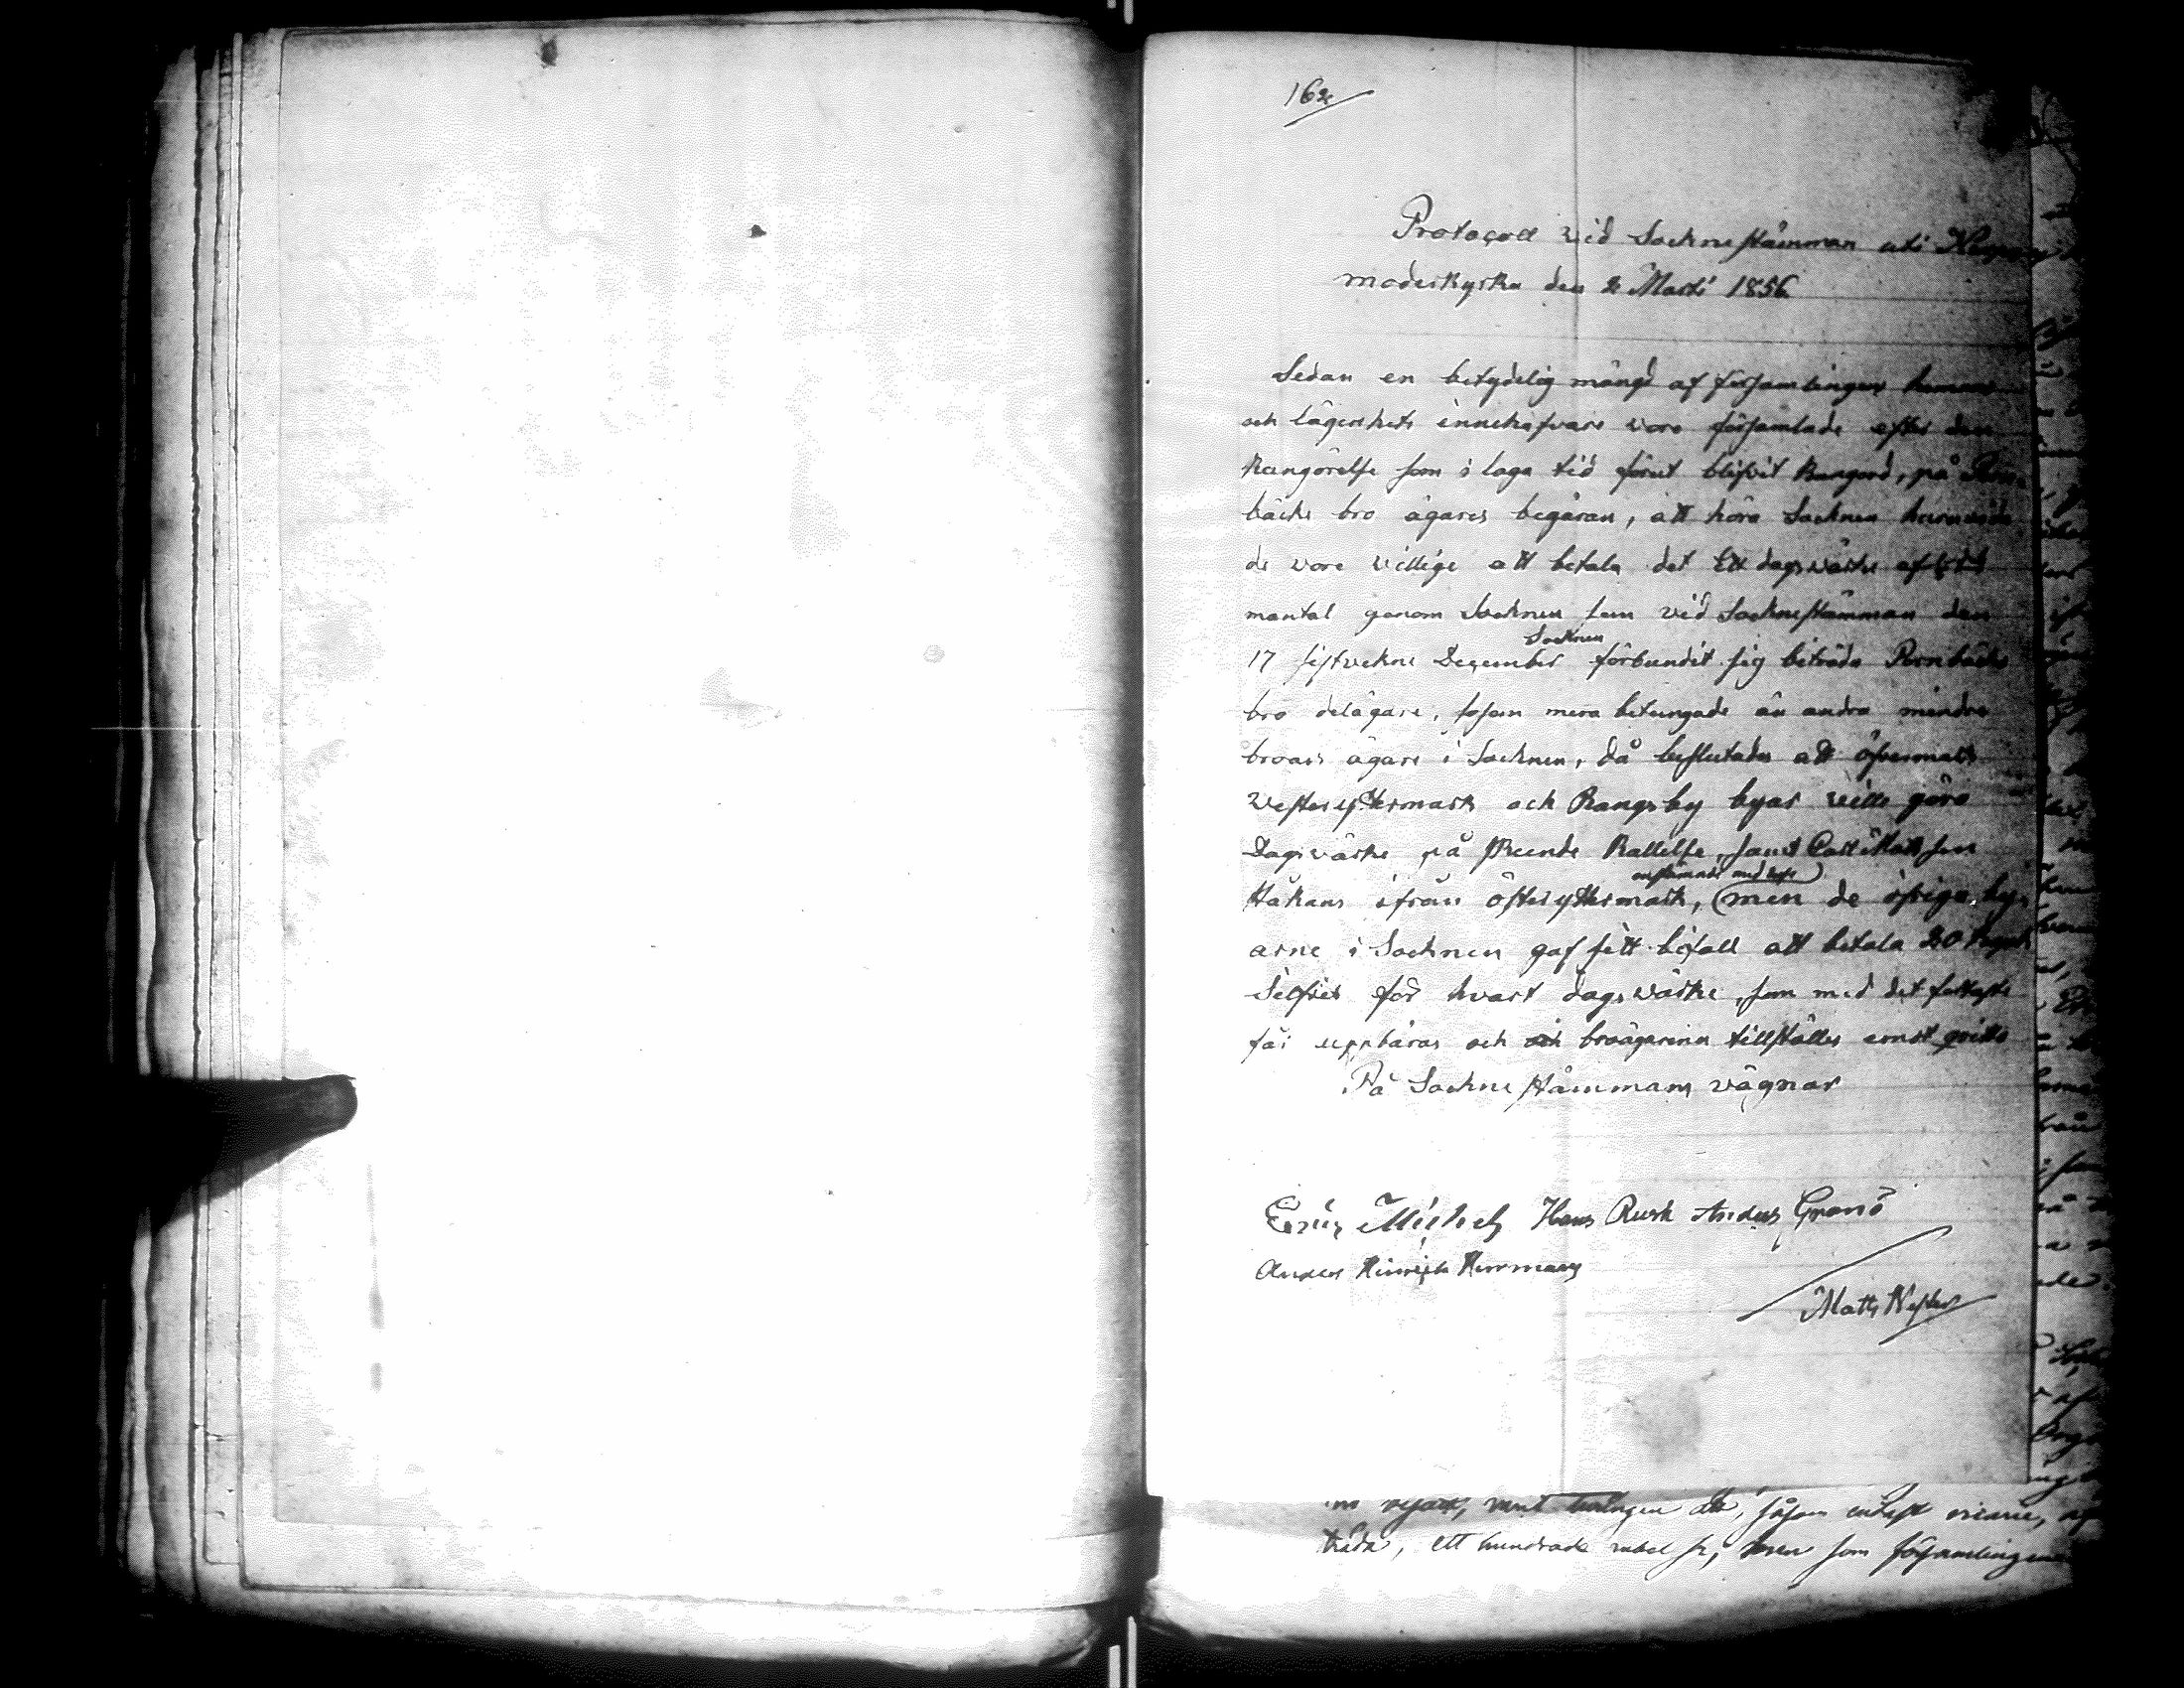 162
Protocoll vid Sockne stämman uti
moderkyrka den 2 Marti 1856
Sedan en betydelig mängd af församlingens hemans
och lägenhets innehafvare voro församlade efter den
kungörelse som i laga tid förut blifvit kungord, på
bäcks bro ägares begäran, att höra Socknen
de vore villige att betala det Ett dagsvärke af
mantal genom Socknen som vid Socknestämman den
Socknen
17 sistvekne December förbundit sig biträda Pernbäcks
bro delägare, såsom mera betungade än andra mindre
broars ägare i Socknen, då beslutades att öfvermark
Westeryttermark och Rangsby byar ville göra
Dagsvärke på skeende kallelse, samt Carl Mattsson
Håkans ifrån österyttermark, (men de öfriga by
arne i Socknen gaf sitt bifall att betala 20 kopek
Selfver för hvart dagsvärke, som med det
får uppbäras och och broägarena tillställes emot qvitto
På Sockne stämmans vägnar
Eriic Michels Hans Rusk Anders Granö
Anders Hinrich Herrmans
Matts Wester
såsom endast
träda, ett hundrade rubel sr, som församlingen